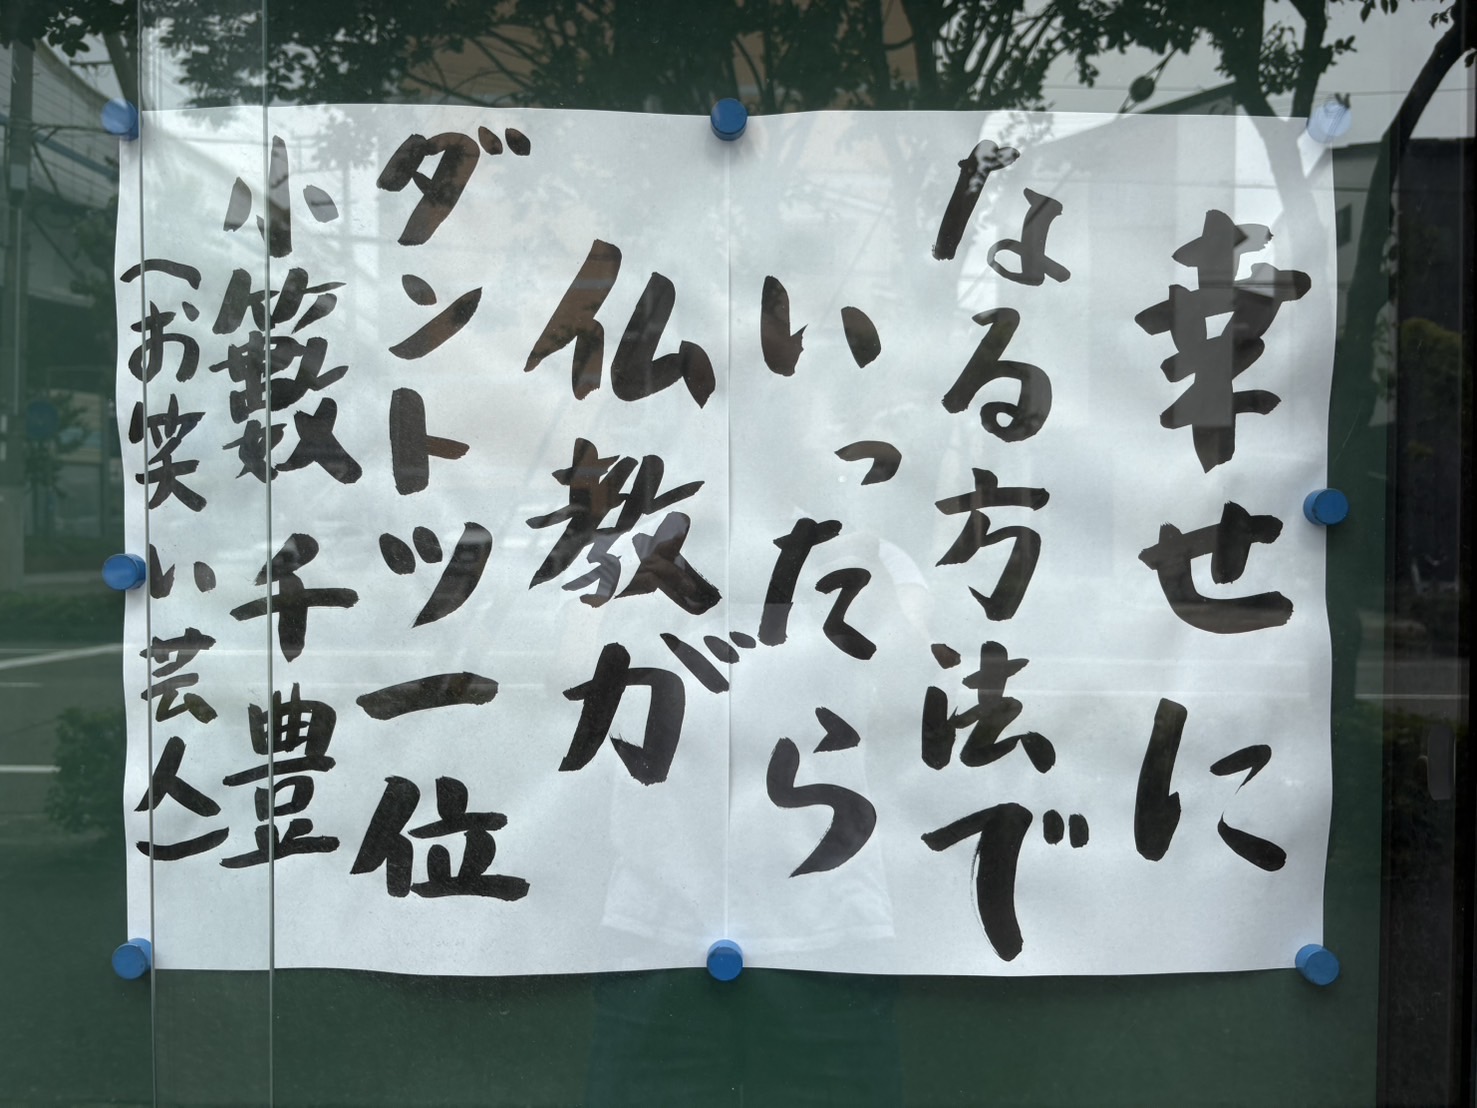 幸せに
なる方法で
いったら
仏教が
ダントツ一位
小籔千豊
（お笑い芸人）